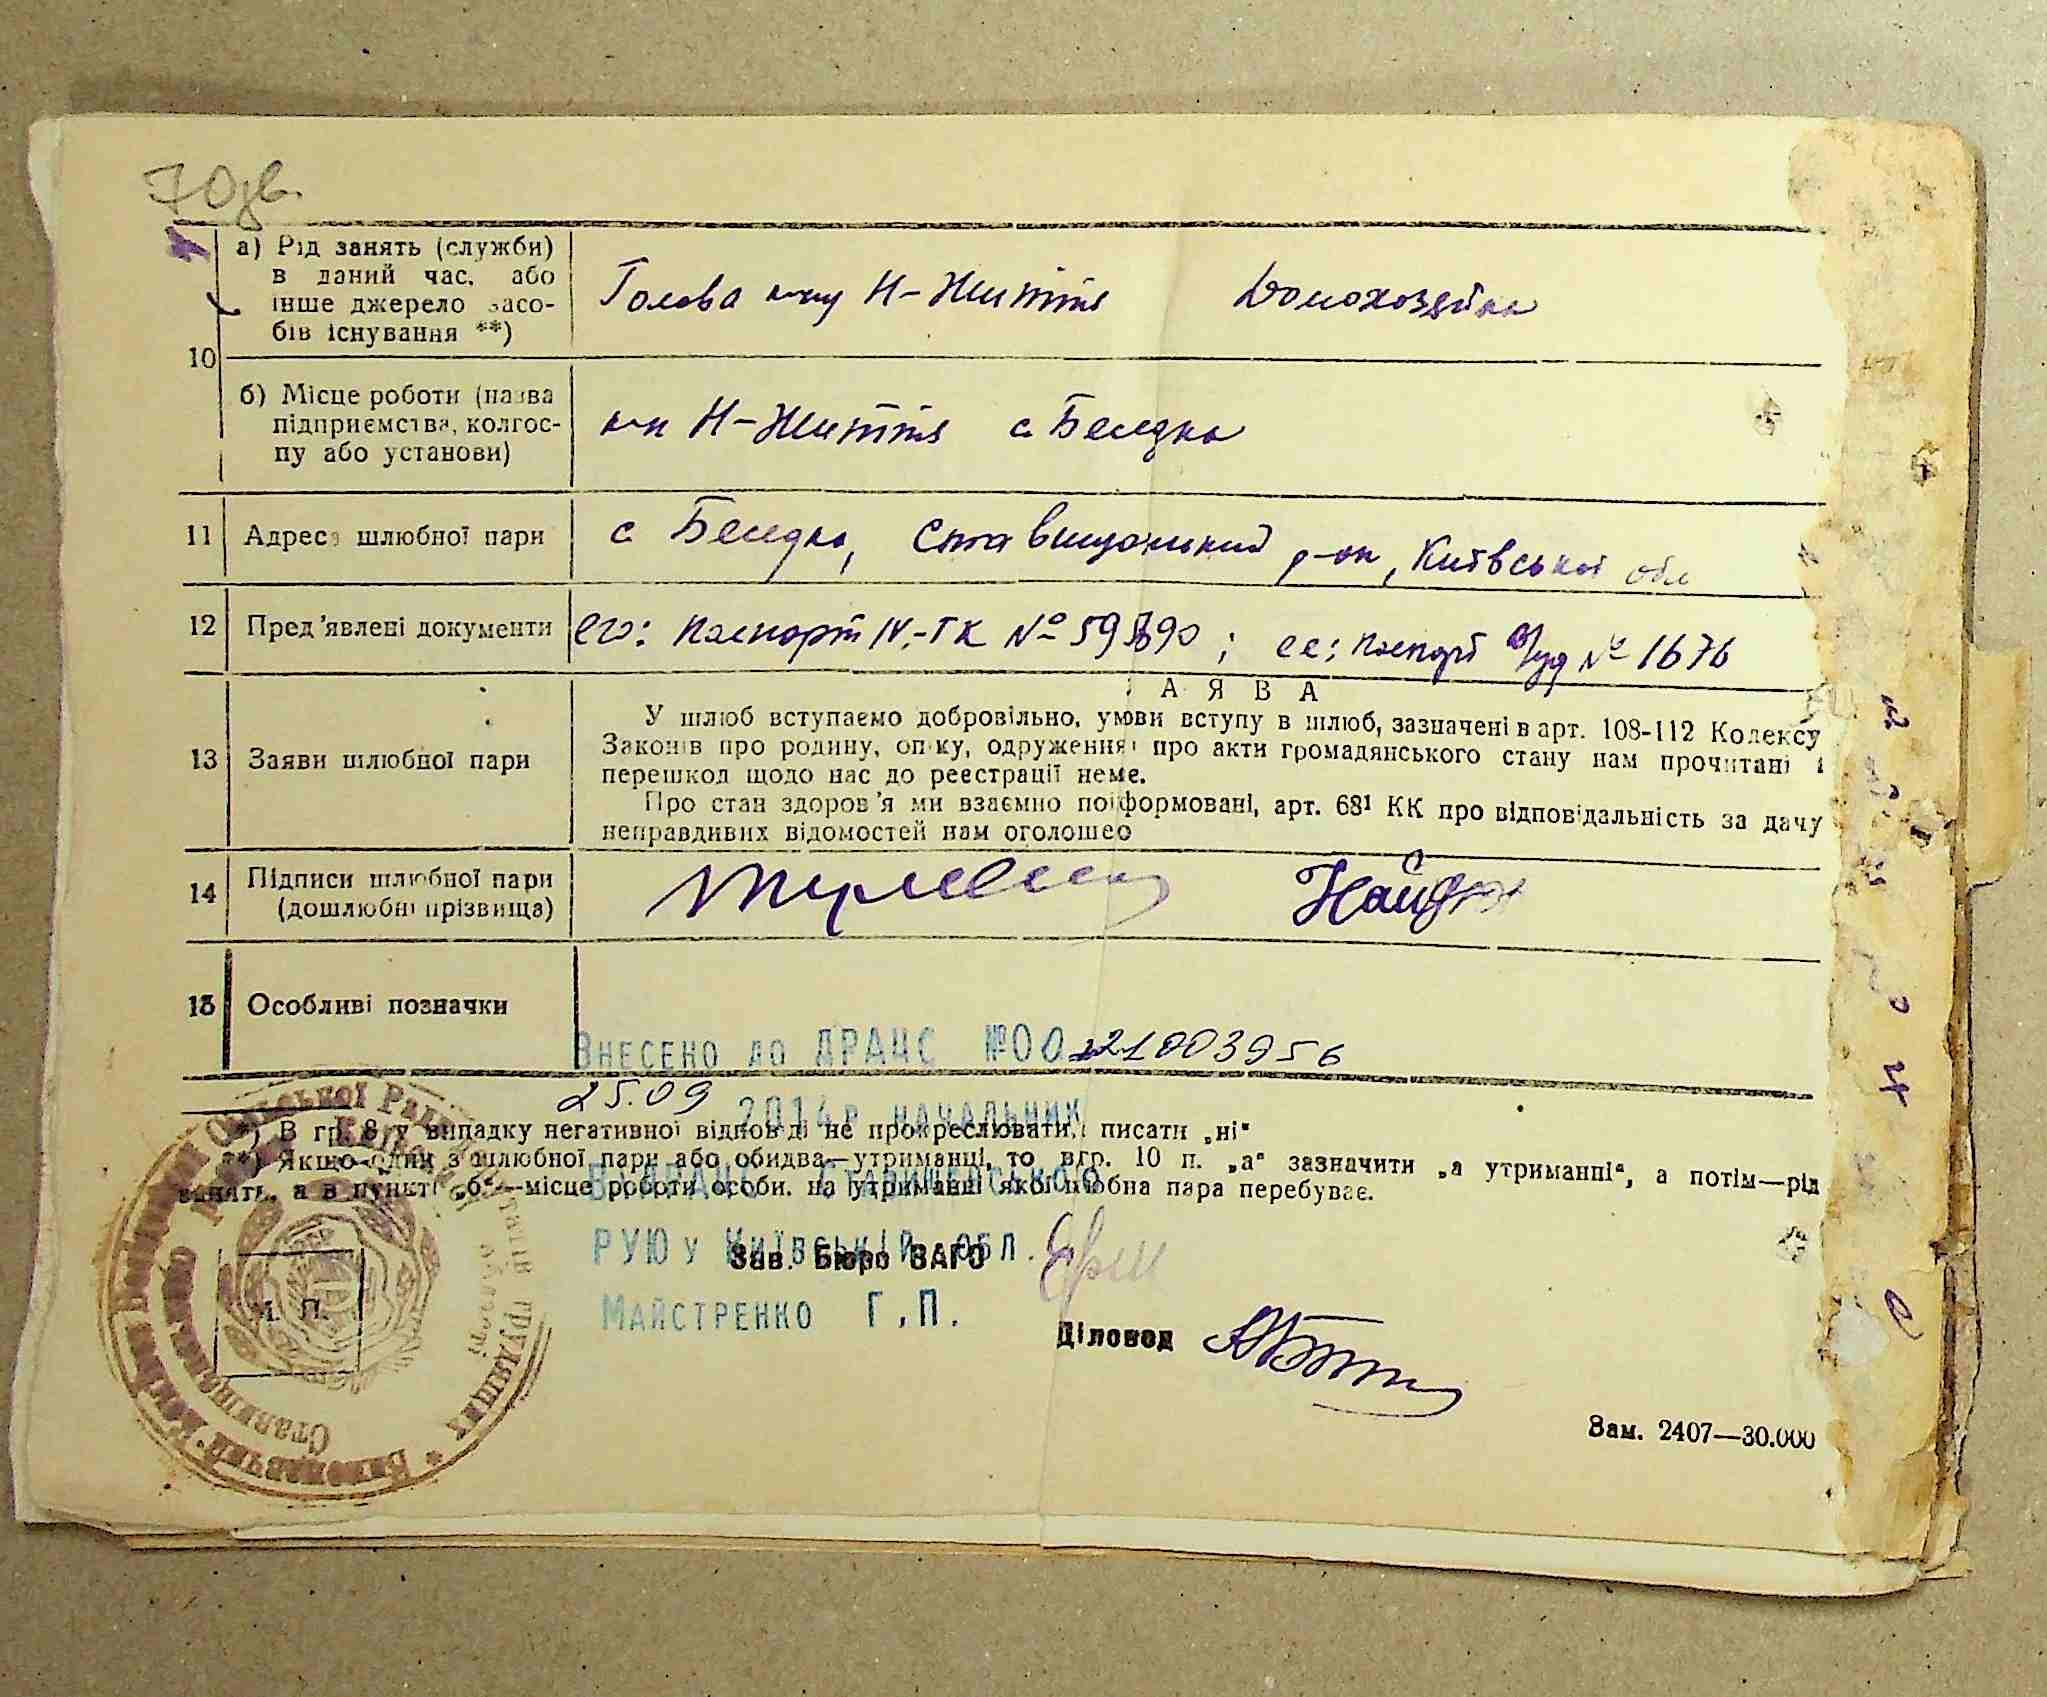 70 зв.
а) Рід занять (служби)
в даний час, або
інше джерело засо-
бів існування **)
Голова к-пу Н-Життя Домохозяйка
10
б) Місце роботи (назва
підприємства, колгос-
пу або установи)
к-п Н-Життя с Беседка
11 Адреса шлюбної пари
с Беседка, Ставищанський р-он, Київської обл
12 Пред'явлені документи
его: паспорт IV-ГК № ; ее: паспорт № 1676
ЗАЯВА
13 Заяви шлюбної пари
У шлюб вступаємо добровільно, умови вступу в шлюб, зазначені в арт. 108-112 Колексу
Законів про родину, опіку, одруження і про акти громадянського стану нам прочитані і
перешкод щодо нас до реєстрації неме.
Про стан здоров'я ми взаємно поінформовані, арт. 68¹ КК про відповідальність за дачу
неправдивих відомостей нам оголошео
14 Підписи шлюбної пари
(дошлюбні прізвища)
15 Особливі позначки
Внесено до ДРАЦС №00221003956
25.09 2014р начальник
*) В гр. 8 у випадку негативної відповіді не прокреслювати, і писати „ні“
**) Якщо один з шлюбної пари або обидва—утриманці, то в гр. 10 п. „а“ зазначити „а утриманні“, а потім—рід
занять, а в пункті „б“—місце роботи особи, на утриманні якої шлюбна пара перебуває.
ВДРАЦС Ставищевського
РУЮ у Київській обл.
Зав. Бюро ЗАГС
Майстренко Г.П.
Діловод
М. П.
Зам. 2407—30.000